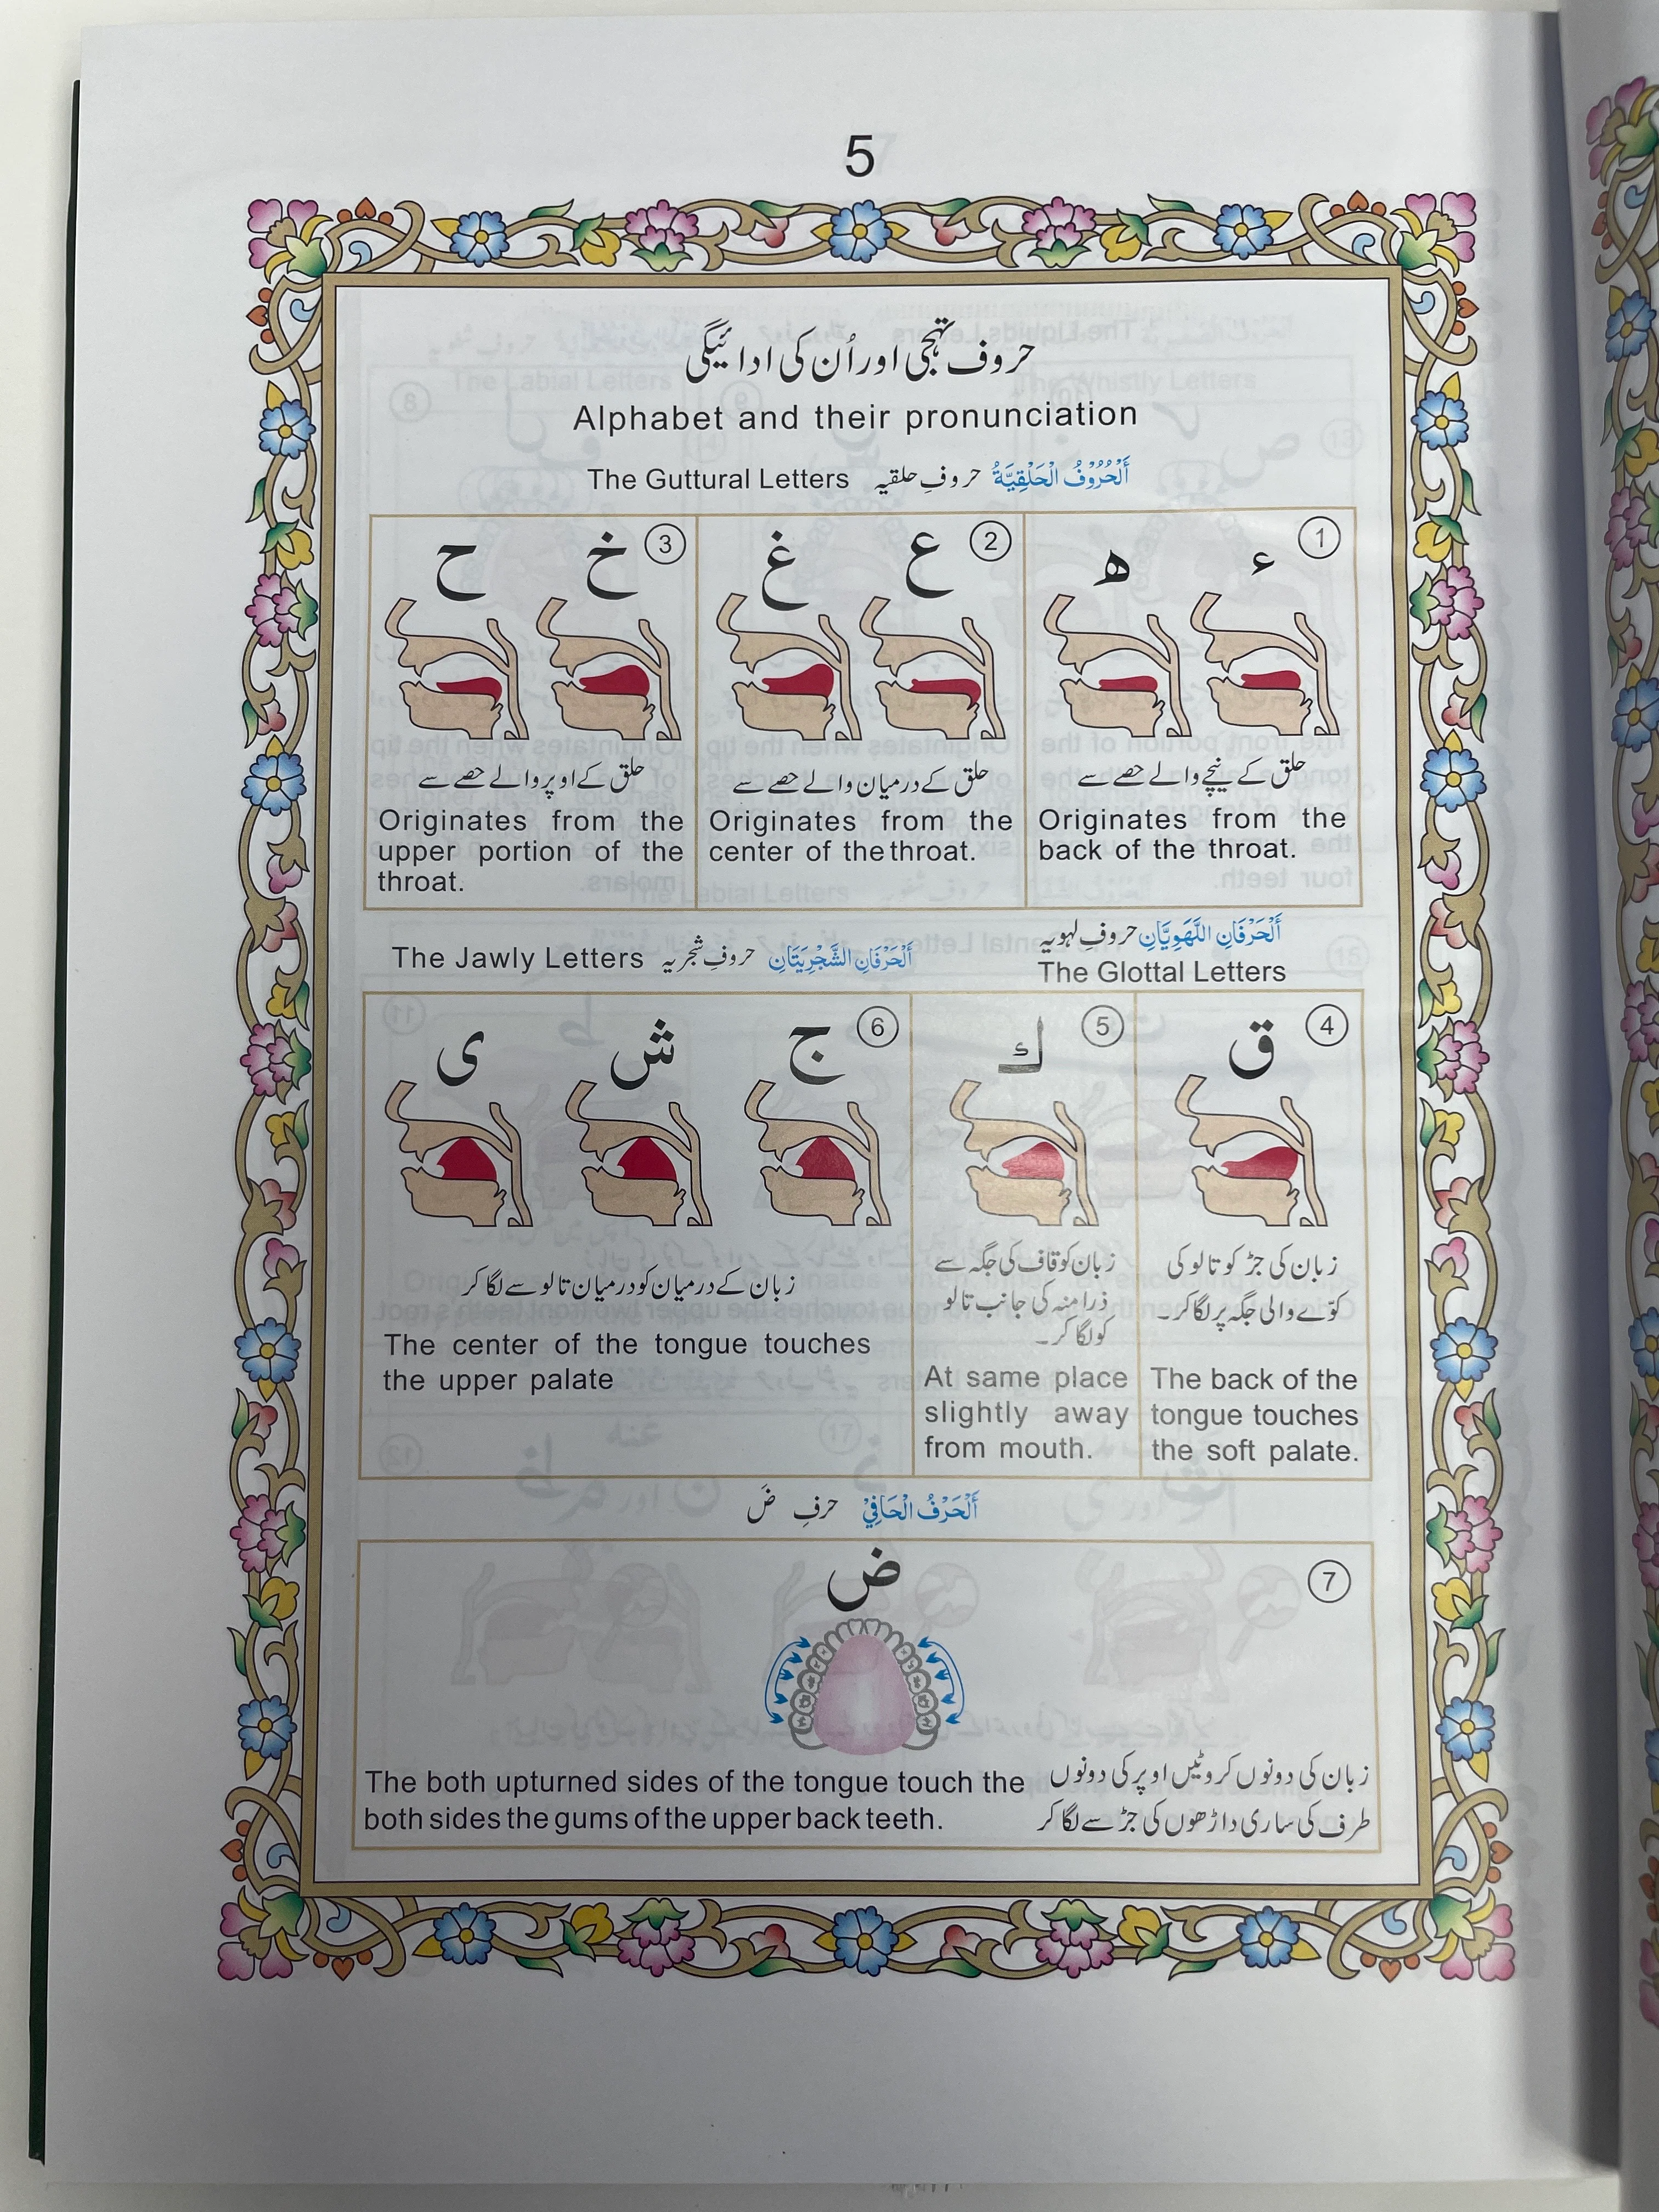 5
حروف تہجی اور اُن کی ادائیگی
Alphabet and their pronunciation
The Guttural Letters حروفِ حلقیہ اَلْحُرُوْفُ الْحَلْقِيَّةُ
1
ء ه
حلق کے نیچے والے حصے سے
Originates from the
back of the throat.
2
ع غ
حلق کے درمیان والے حصے سے
Originates from the
center of the throat.
3
خ ح
حلق کے اوپر والے حصے سے
Originates from the
upper portion of the
throat.
اَلْحَرْفَانِ اللَّهَوِيَّانِ حروفِ لہویہ
The Glottal Letters
The Jawly Letters حروفِ شجریہ اَلْحَرْفَانِ الشَّجْرِيَتَانِ
4
ق
زبان کی جڑ کو تالو کی
کوّے والی جگہ پر لگا کر۔
The back of the
tongue touches
the soft palate.
5
ك
زبان کو قاف کی جگہ سے
ذرا منہ کی جانب تالو
کو لگا کر۔
At same place
slightly away
from mouth.
6
ج ش ی
زبان کے درمیان کو درمیان تالو سے لگا کر
The center of the tongue touches
the upper palate
اَلْحَرْفُ الْحَافِيْ حرفِ ضَ
7
ض
زبان کی دونوں کروٹیں اوپر کی دونوں
طرف کی ساری داڑھوں کی جڑ سے لگا کر
The both upturned sides of the tongue touch the
both sides the gums of the upper back teeth.